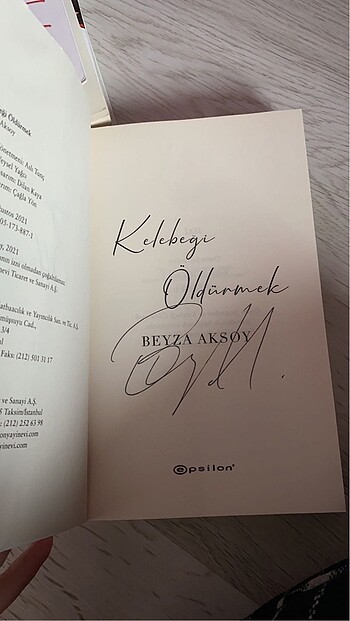 eği Öldürmek
Aksoy
Aslı Tunç
Veysel Yağcı
Dilan Kaya
Çağla Yön
ğustos 2021
05-173-887-1
oy, 2021
izni olmadan çoğaltılamaz.
nevi Ticaret ve Sanayi A.Ş.
atbaacılık ve Yayıncılık San. ve Tic. A.Ş.
Cad.,
3/4
ul
Faks: (212) 501 31 17
ve Sanayi A.Ş.
6 Taksim/İstanbul
: (212) 252 63 98
onyayinevi.com
yinevi.com
Kelebeği
Öldürmek
BEYZA AKSOY
epsilon